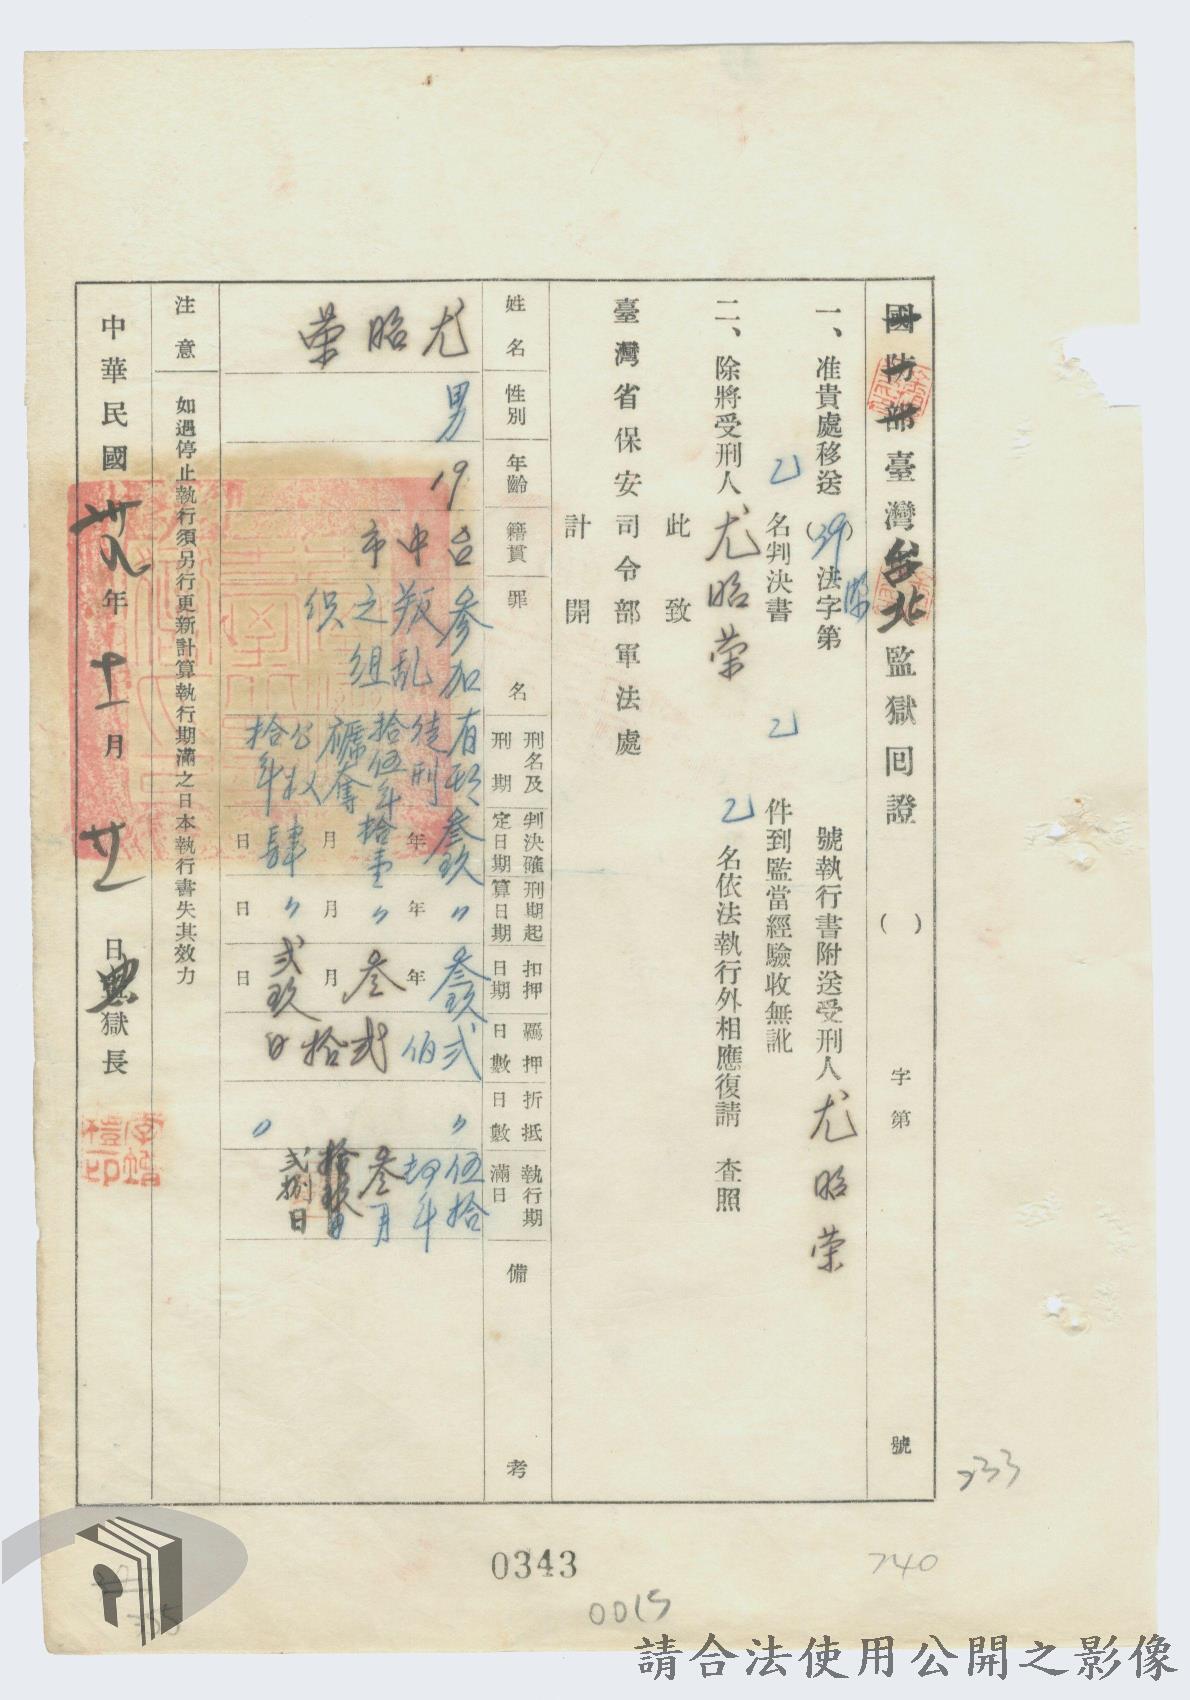 國防部臺灣台北監獄回證 ( ) 字第 號
一、准貴處移送(39)法字第 號執行書附送受刑人尤昭榮
乙名判決書乙件到監當經驗收無訛
二、除將受刑人尤昭榮乙名依法執行外相應復請 查照
此致
臺灣省保安司令部軍法處
計開
姓名
尤昭榮
性別
男
年齡
19
籍貫
台中市
罪名
參加叛乱之組织
刑名及刑期
有期徒刑拾伍年褫奪公权拾年
判決確定日期
叁玖年拾壹月肆日
刑期起算日期
〃年〃月〃日
扣押日期
叁玖年叁月弍玖日
羈押日數
弍佰弍拾日
折抵日數
〃 〃
執行期滿日
伍拾肆年叁月弍捌日
備考
注意 如遇停止執行須另行更新計算執行期滿之日本執行書失其效力
中華民國卅九年十一月廿一日典獄長
233
740
0343
0015
請合法使用公開之影像